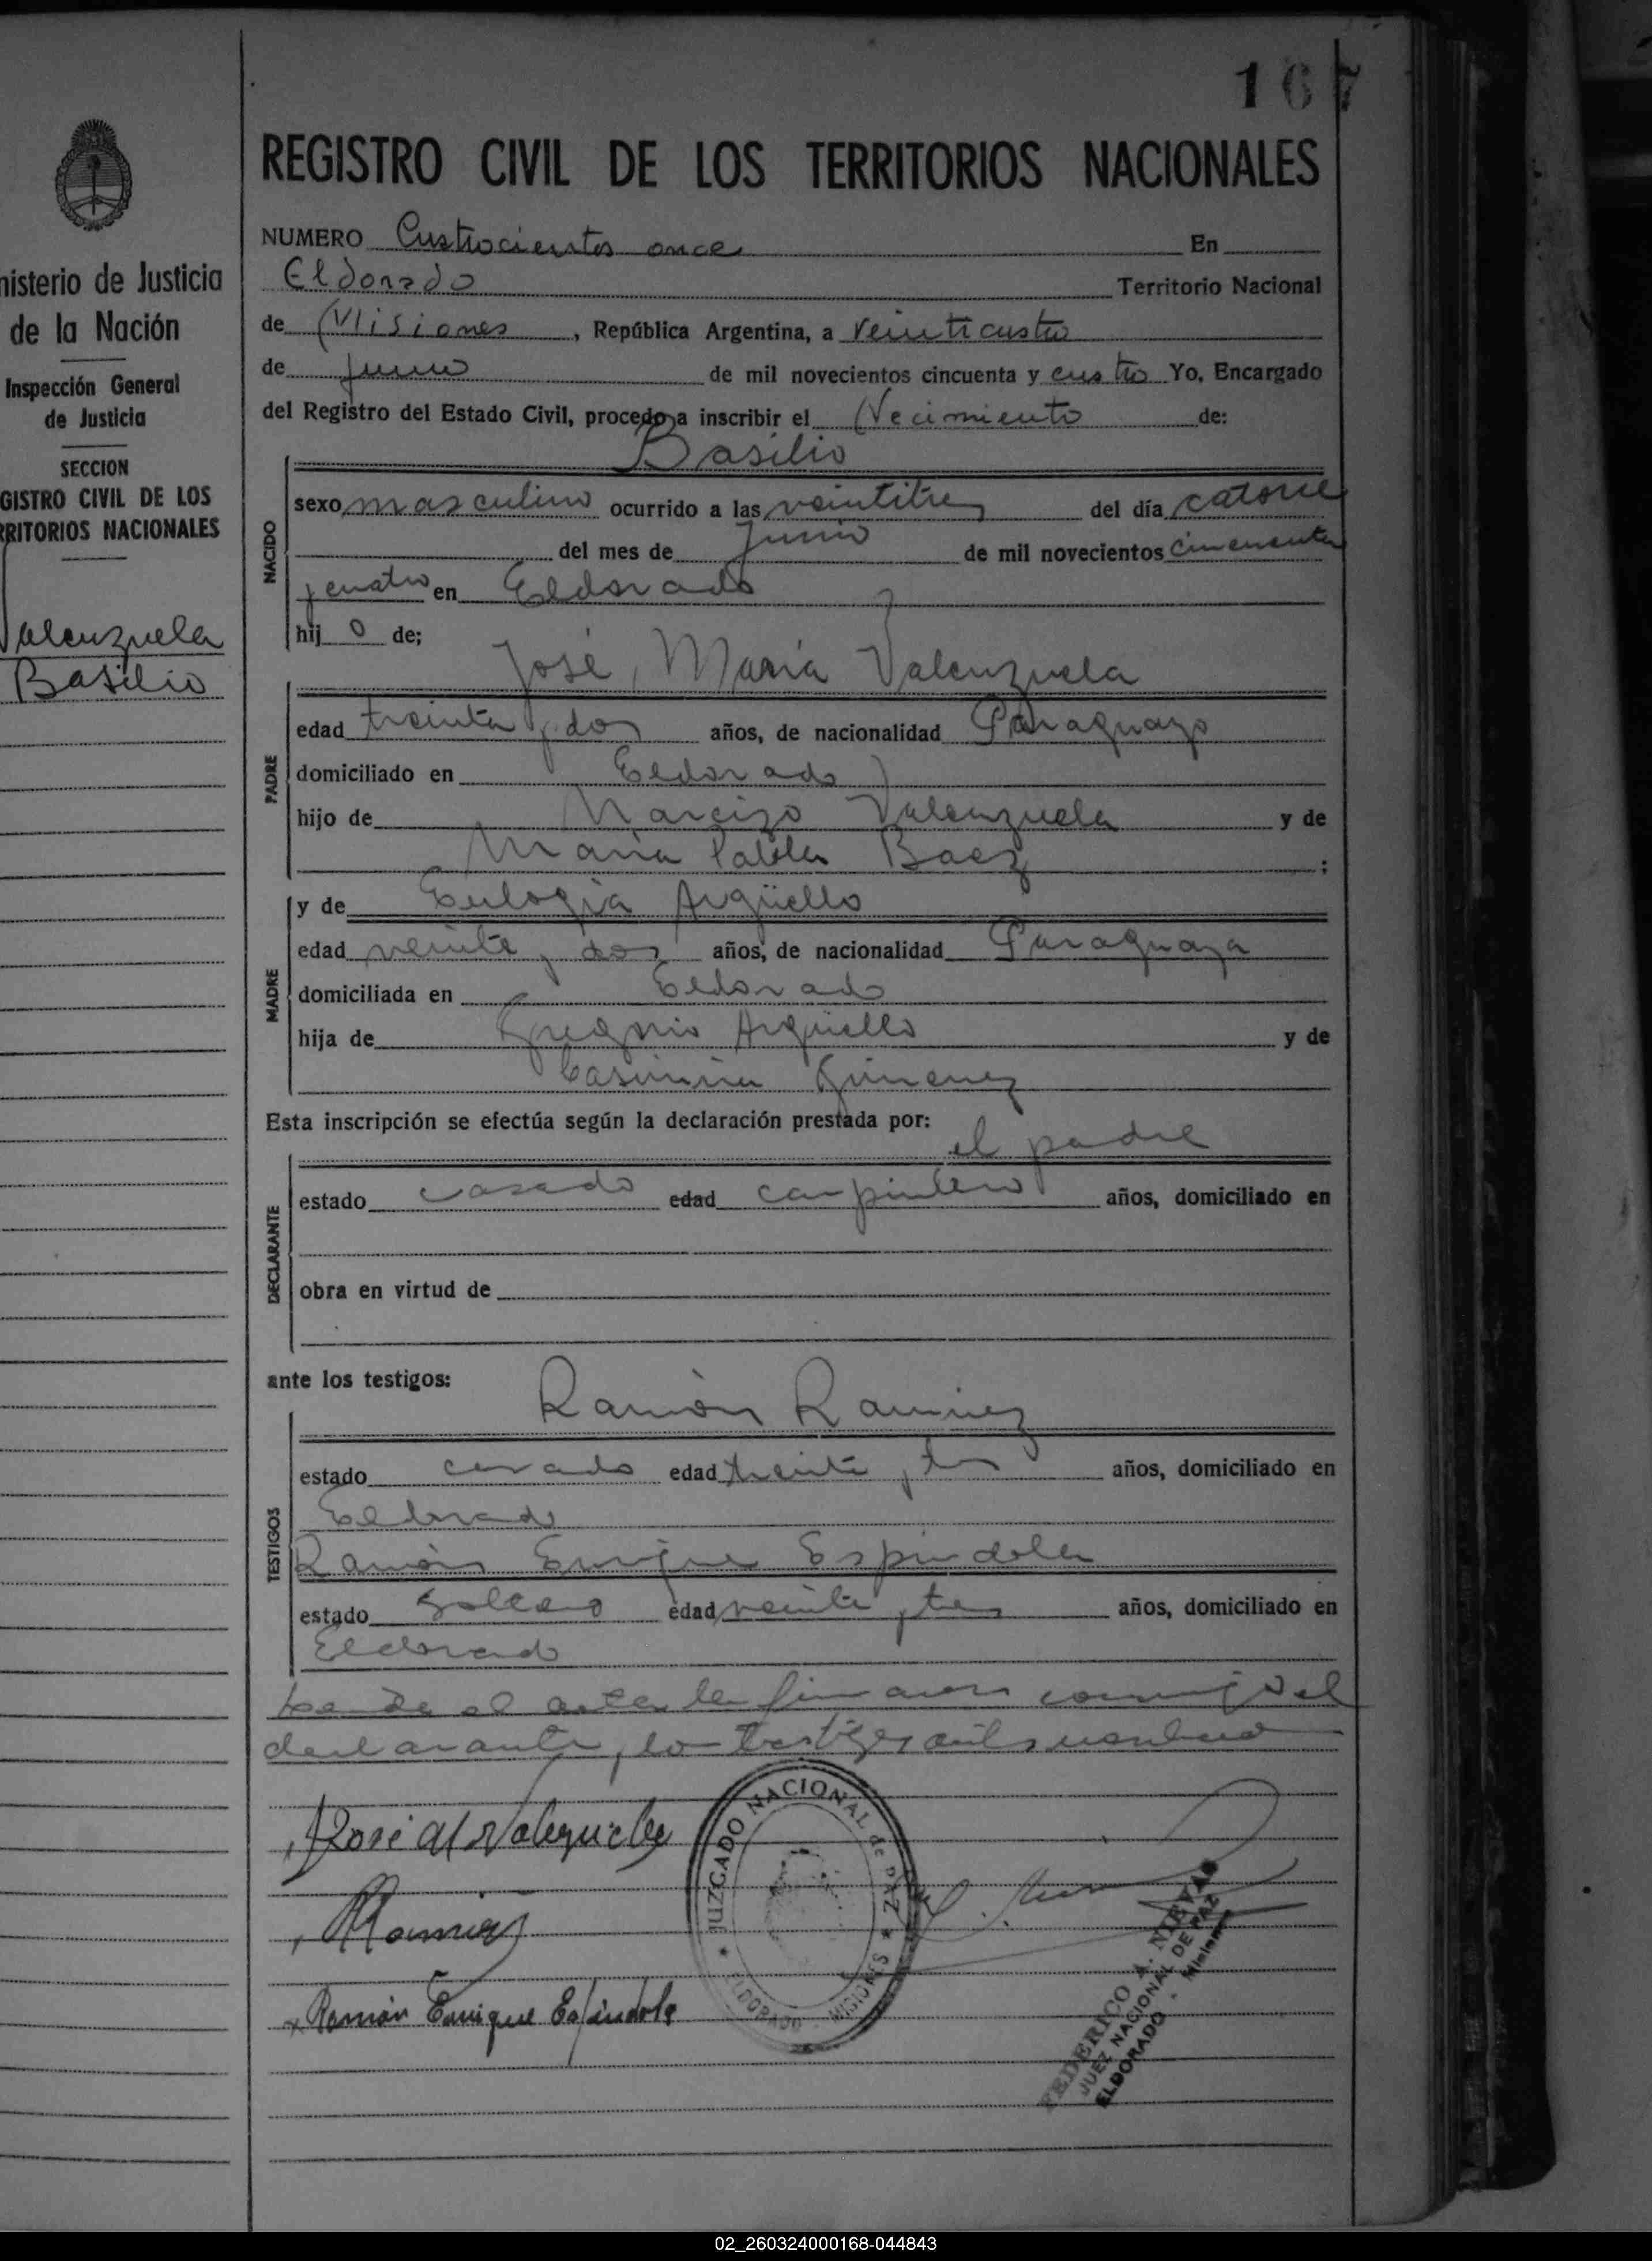 167
REGISTRO CIVIL DE LOS TERRITORIOS NACIONALES
nisterio de Justicia
de la Nación
Inspección General
de Justicia
SECCION
GISTRO CIVIL DE LOS
RRITORIOS NACIONALES
Valenzuela
Basilio
NUMERO Cuatrocientos once En
Eldorado Territorio Nacional
de Misiones, República Argentina, a veinticuatro
de Junio de mil novecientos cincuenta y cuatro Yo, Encargado
del Registro del Estado Civil, procedo a inscribir el Nacimiento de:
Basilio
NACIDO
sexo masculino ocurrido a las veintitres del día catorce
del mes de Junio de mil novecientos cincuenta
y cuatro en Eldorado
hijo de;
José María Valenzuela
PADRE
edad treinta y dos años, de nacionalidad Paraguayo
domiciliado en Eldorado
hijo de Narcizo Valenzuela y de
María Pabla Baez ;
y de Eulogia Argüello
MADRE
edad veinte y dos años, de nacionalidad Paraguaya
domiciliada en Eldorado
hija de Gregorio Argüello y de
Casimira Gimenez
Esta inscripción se efectúa según la declaración prestada por:
el padre
DECLARANTE
estado casado edad carpintero años, domiciliado en
obra en virtud de
ante los testigos:
Ramón Ramirez
TESTIGOS
estado casado edad treinta y tres años, domiciliado en
Eldorado
Ramón Enrique Espindola
estado soltero edad veinte y tres años, domiciliado en
Eldorado
el acta la firmaron conmigo el
declarante y los testigos
José M Valenzuela
Ramirez
Ramón Enrique Espindola
JUZGADO NACIONAL de PAZ
ELDORADO - MISIONES
FEDERICO A. NIEVAS
JUEZ NACIONAL DE PAZ
ELDORADO - Misiones
02_260324000168-044843